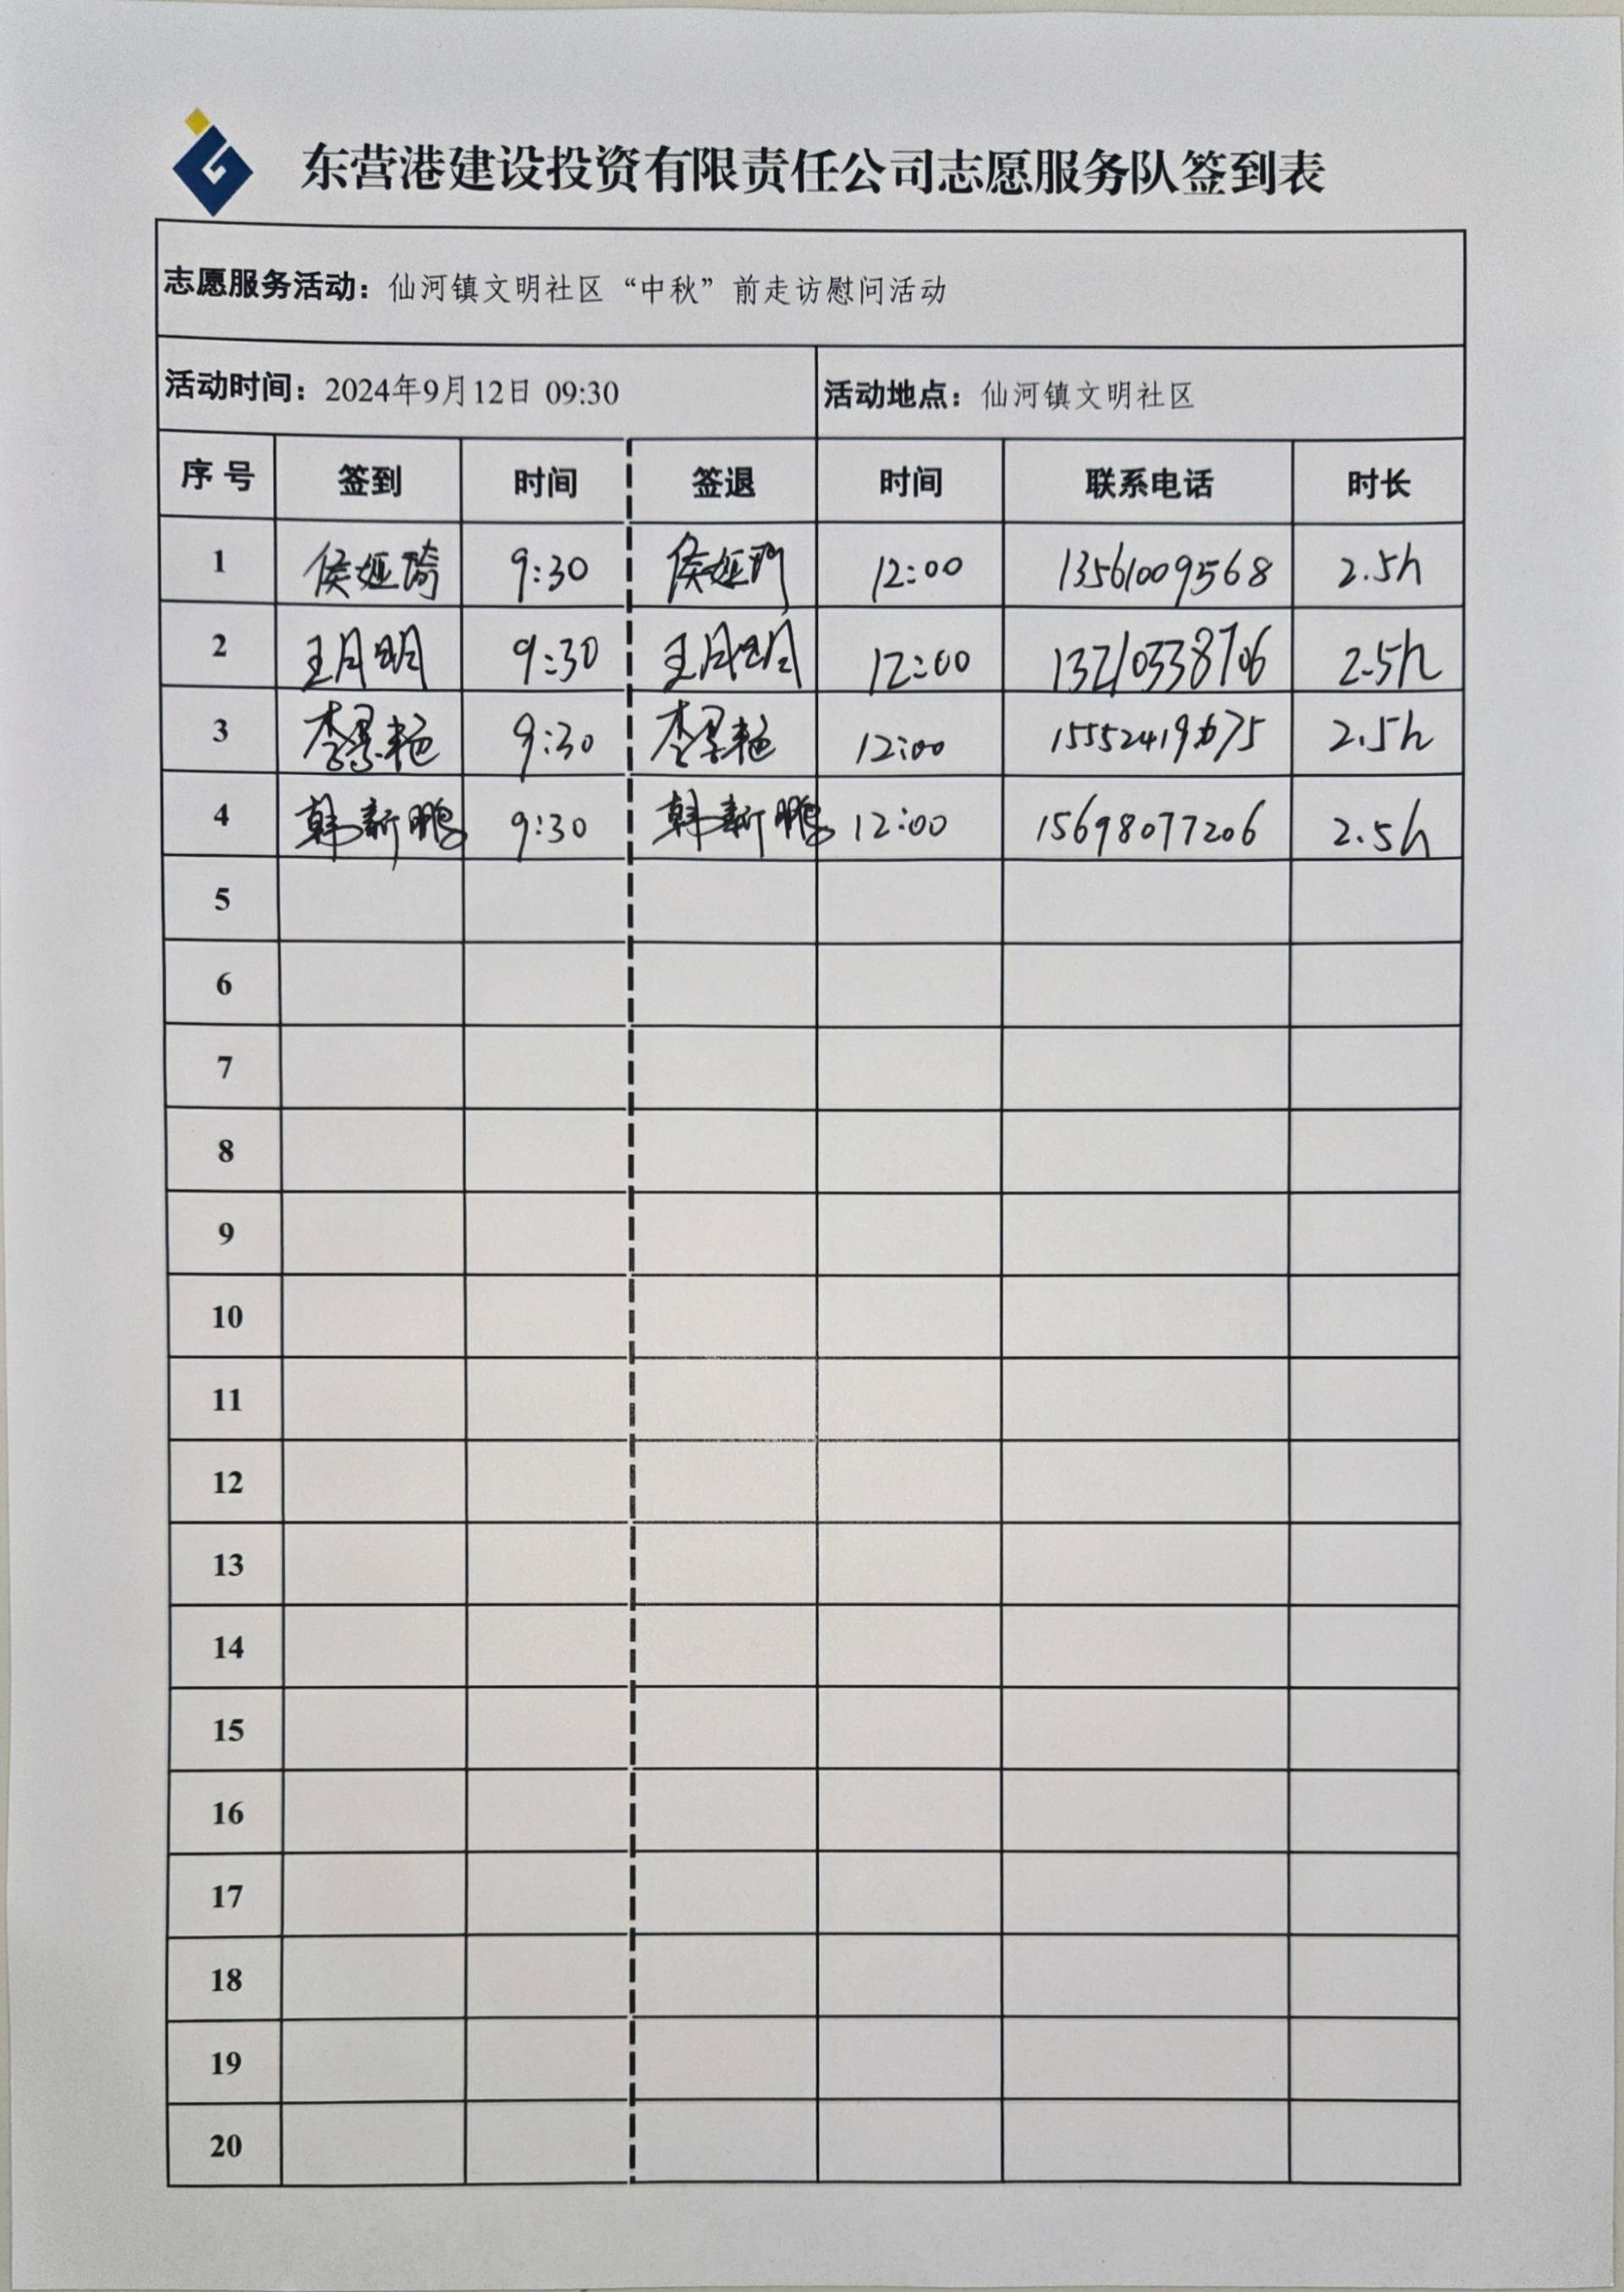 东营港建设投资有限责任公司志愿服务队签到表
志愿服务活动：仙河镇文明社区“中秋”前走访慰问活动
活动时间：2024年9月12日 09:30 活动地点：仙河镇文明社区
序号 签到 时间 签退 时间 联系电话 时长
1 侯姬琦 9:30 侯姬琦 12:00 13561009568 2.5h
2 王月明 9:30 王月明 12:00 13210338706 2.5h
3 李景艳 9:30 李景艳 12:00 2.5h
4 韩新鹏 9:30 韩新鹏 12:00 15698077206 2.5h
5
6
7
8
9
10
11
12
13
14
15
16
17
18
19
20